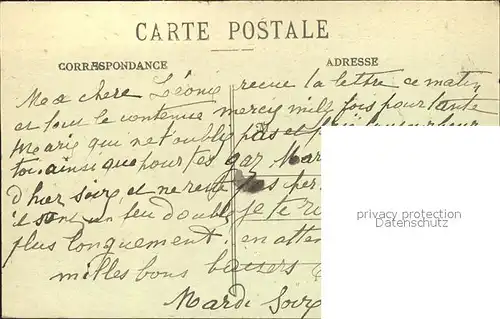 CARTE POSTALE
CORRESPONDANCE
ADRESSE
Ma chere Léonie recue la lettre ce matin
et tout le contenue mercis mille fois pour tante
Marie qui ne t'oublie pas et
toi ainsi que pour tes Mar
d'hier soire et ne pas per
il sont un peu double je te re
plus longuement en atten
milles bons baisers
Mardi Soire
privacy protection
Datenschutz